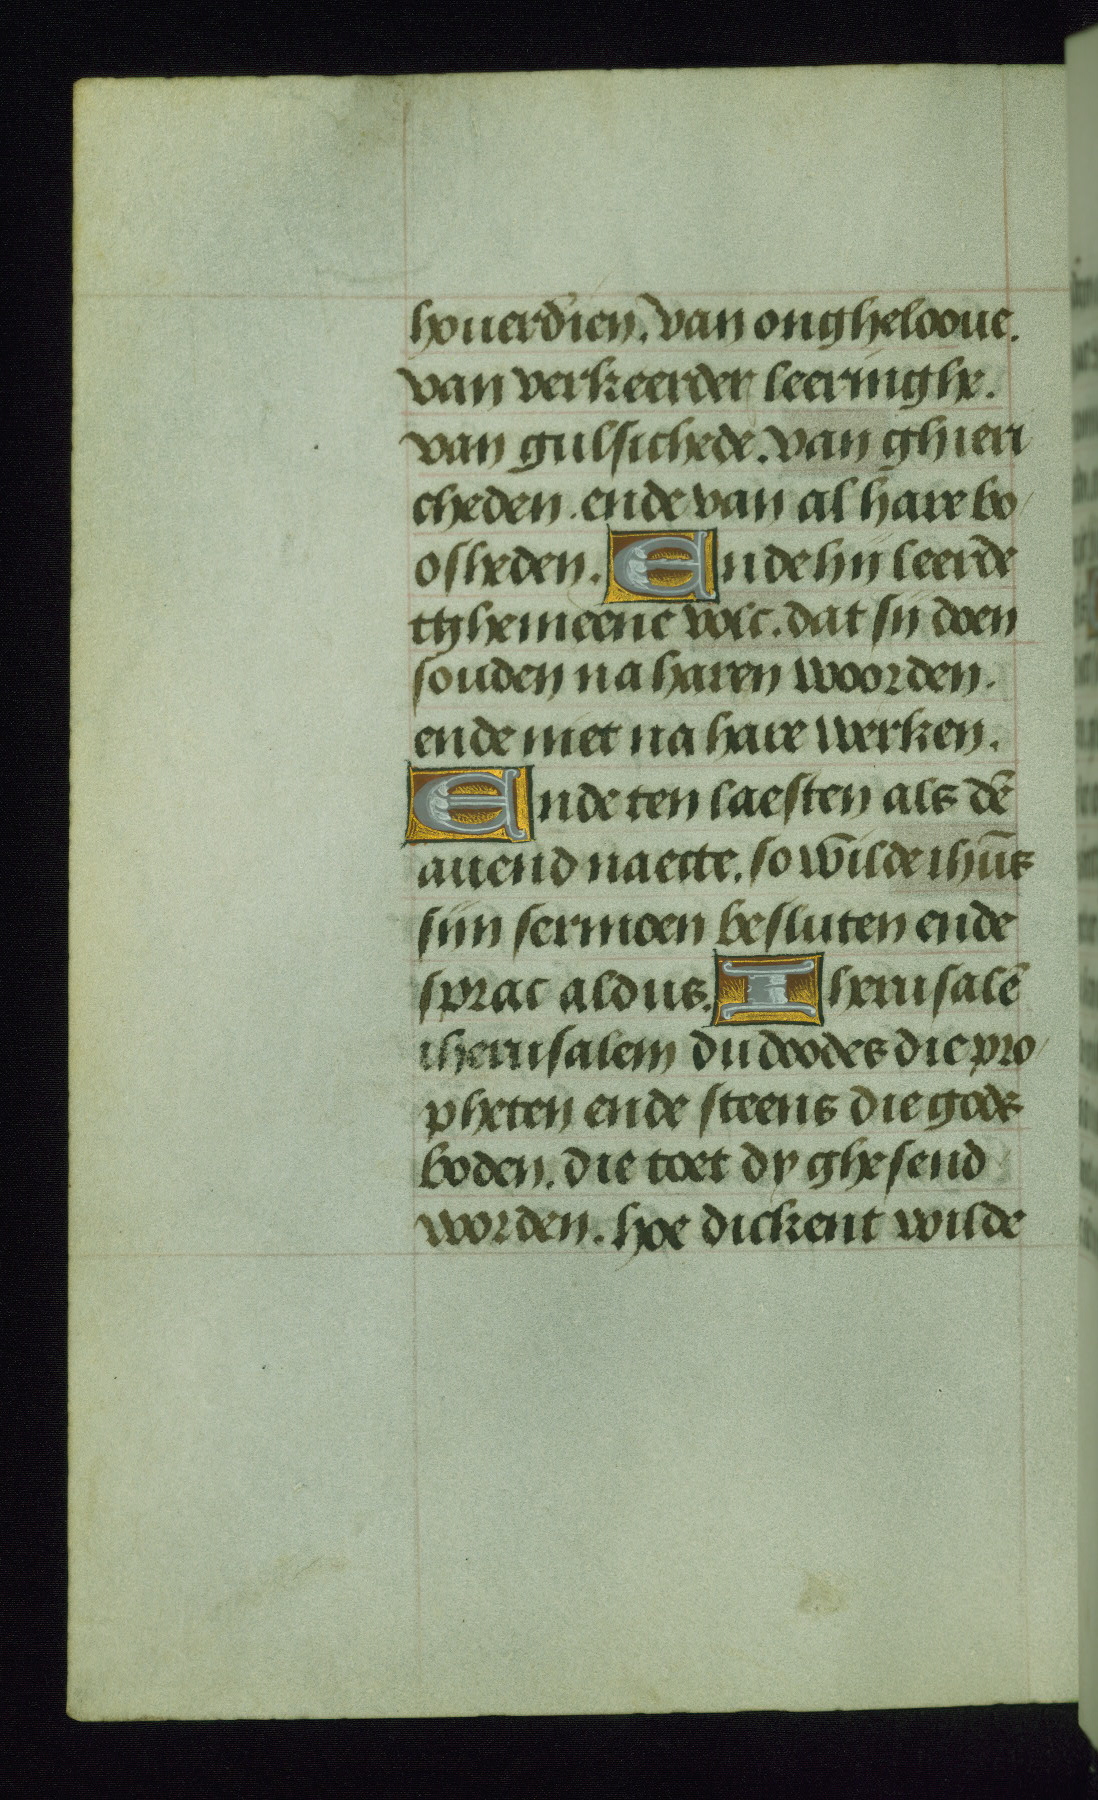 houerdien. van onghelooue.
van verkeerder leeringhe.
van gulsichede. van ghieri
cheden. ende van al hare bo
osheden. Ende hij leerde
ttghemeene volc. dat sij doen
souden na haren woorden.
ende niet na hare werken.
Ende ten laesten als dē
auend naecte. so wilde ihūs
sijn sermoen besluten ende
sprac aldus. Iherusalē
iherusalem du doodes die pro
pheten ende steens die gods
boden. die toet dy ghesend
worden. hoe dickent wilde